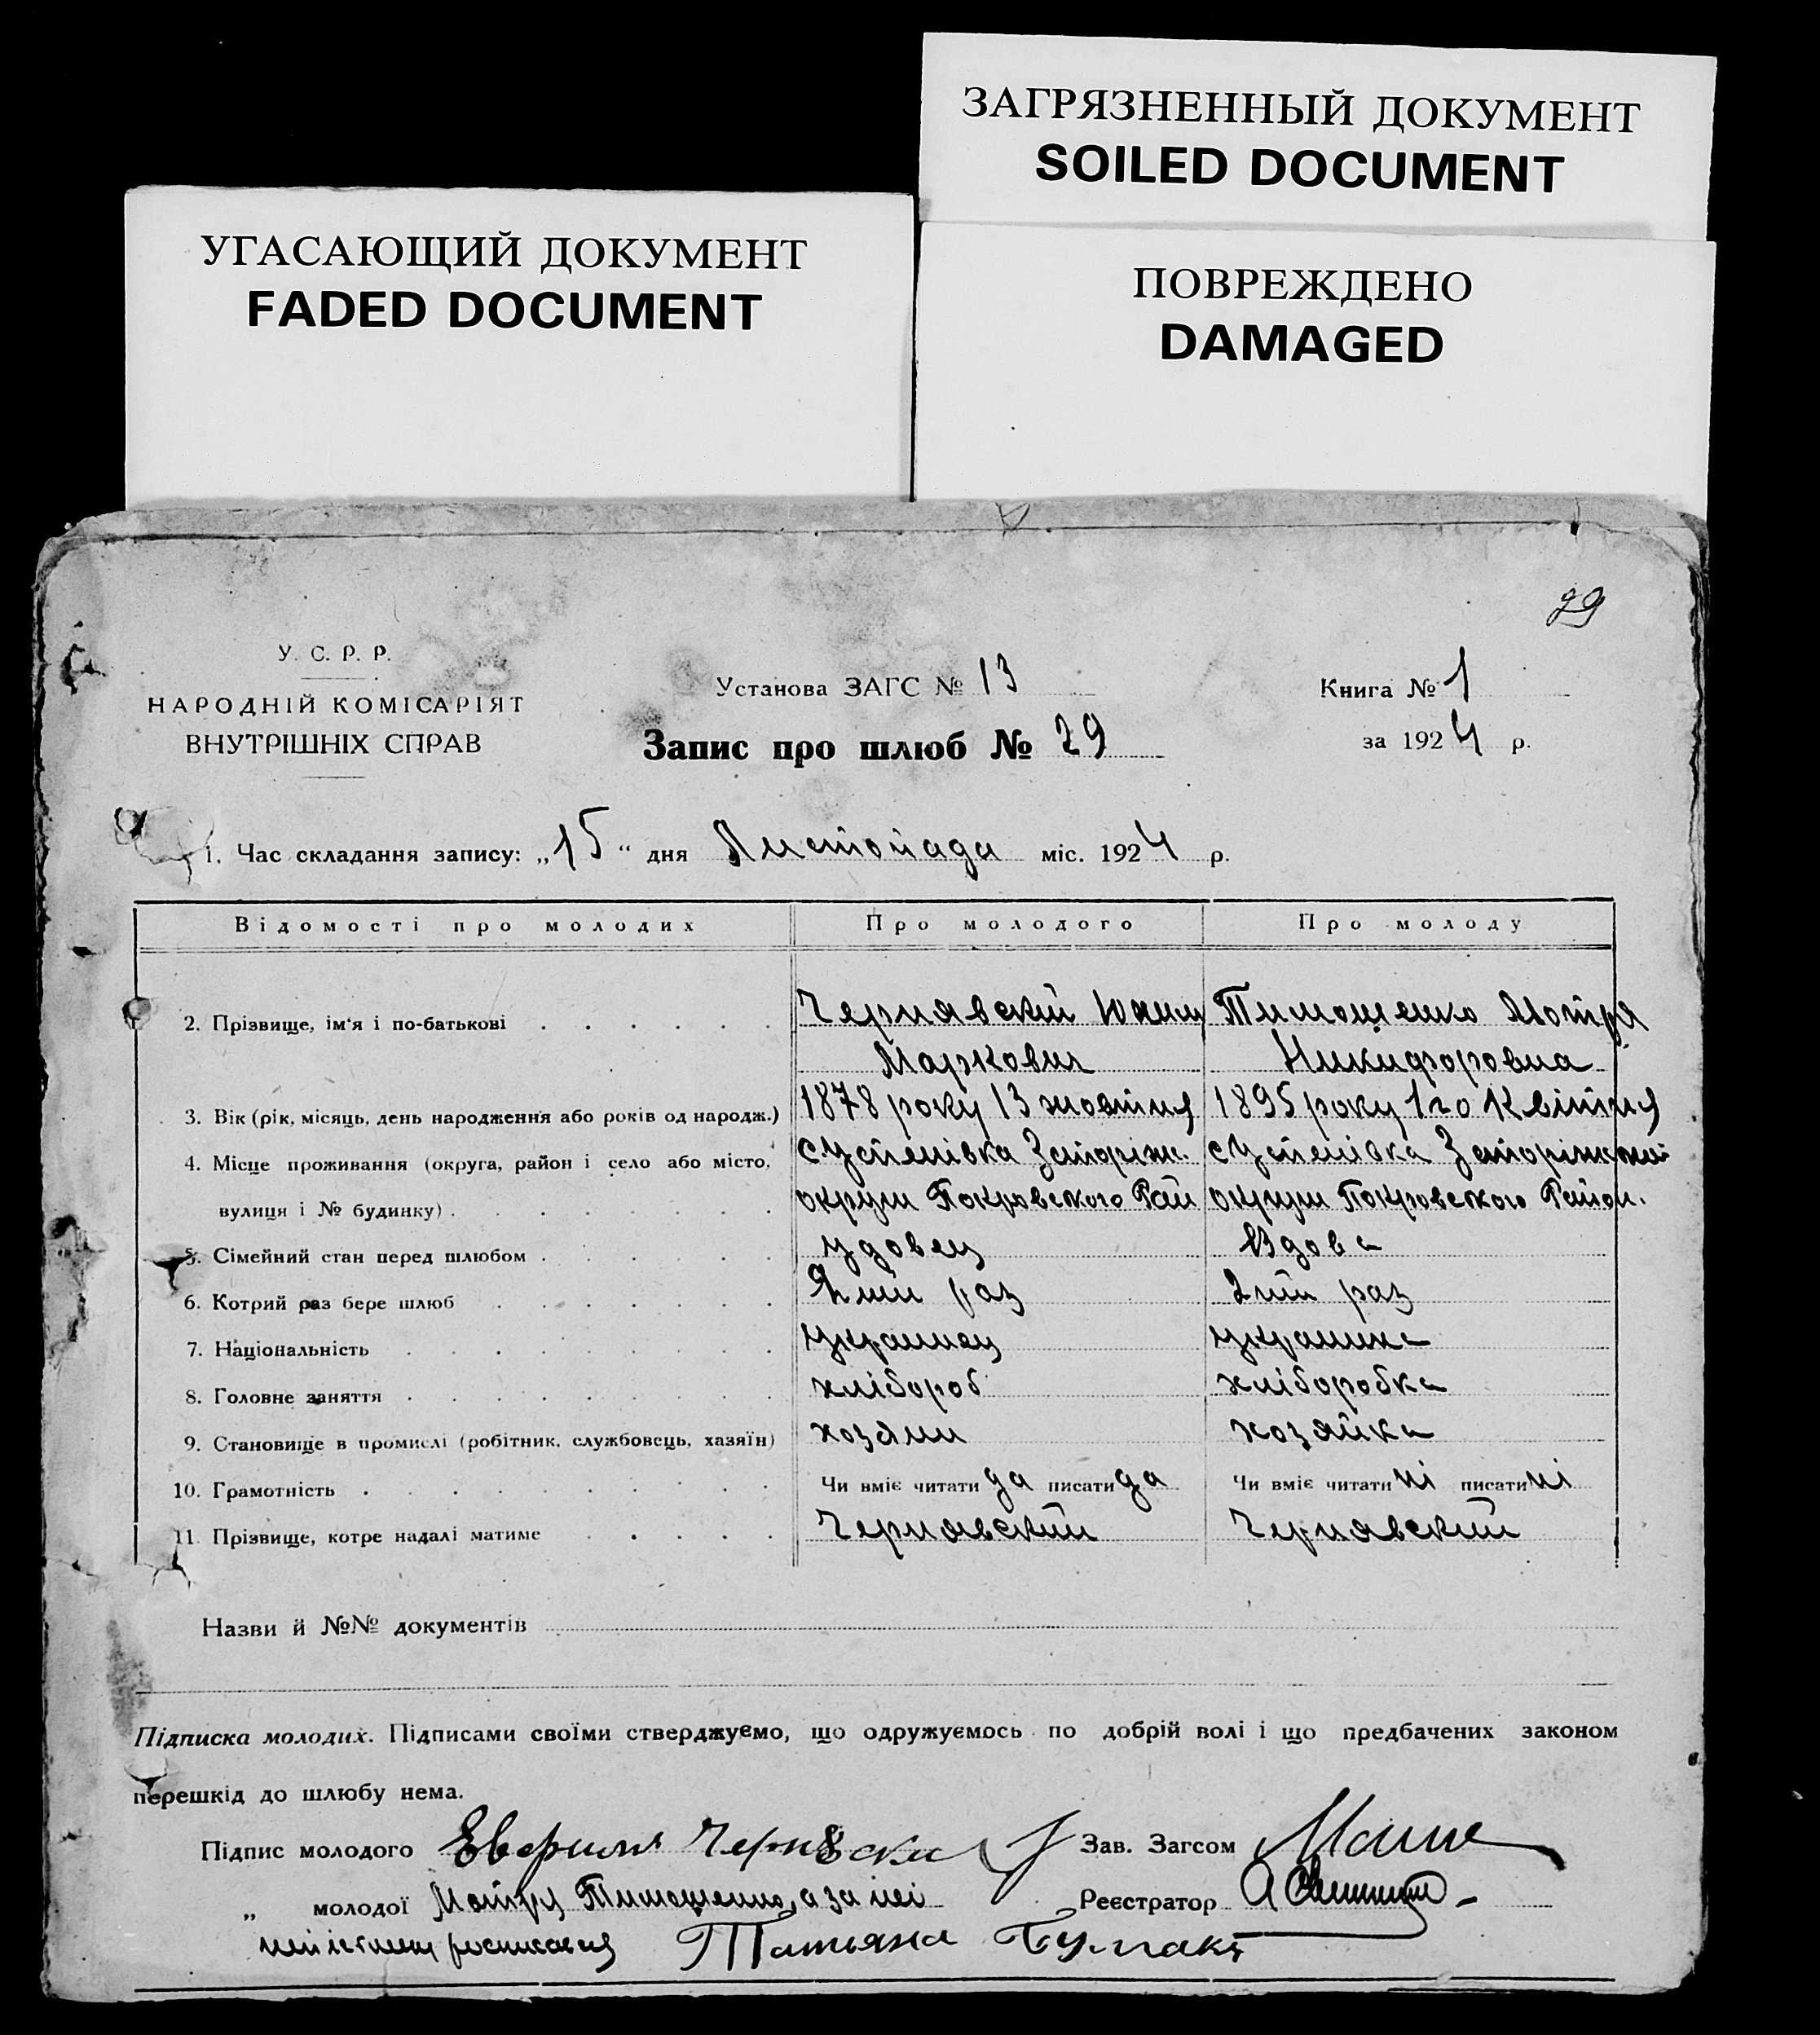 ЗАГРЯЗНЕННЫЙ ДОКУМЕНТ
SOILED DOCUMENT
УГАСАЮЩИЙ ДОКУМЕНТ
FADED DOCUMENT
ПОВРЕЖДЕНО
DAMAGED
У. С. Р. Р.
НАРОДНІЙ КОМІСАРІЯТ
ВНУТРІШНІХ СПРАВ
Установа ЗАГС № 13
Книга № 1
Запис про шлюб № 29
за 1924 р.
1. Час складання запису: „15“ дня Листопада міс. 1924 р.
Відомості про молодих Про молодого Про молоду
2. Прізвище, ім'я і по-батькові Чернявский Юхим Тимошенко Мотря
Маркович Никифоровна
3. Вік (рік, місяць, день народження або років од народж.) 1878 року 13 жовтня 1895 року 1го Квітня
4. Місце проживання (округа, район і село або місто, с Успенівка Запоріж. с Успенівка
вулиця і № будинку) округи Покровского Рай округи Покровского Район.
5. Сімейний стан перед шлюбом удовец Вдова
6. Котрий раз бере шлюб 2ий раз 2ий раз
7. Національність украинец украинка
8. Головне заняття хлібороб хлiборобка
9. Становище в промислі (робітник, службовець, хазяїн) хозяин хозяйка
10. Грамотність Чи вміє читати да писати да Чи вміє читати ні писати ні
11. Прізвище, котре надалі матиме Чернявский Чернявский
Назви й №№ документів
Підписка молодих. Підписами своїми стверджуємо, що одружуємось по добрій волі і що предбачених законом
перешкід до шлюбу нема.
Підпис молодого Зав. Загсом
„ молодої Мотря Тимошенко, а за неі Реєстратор
Татьяна